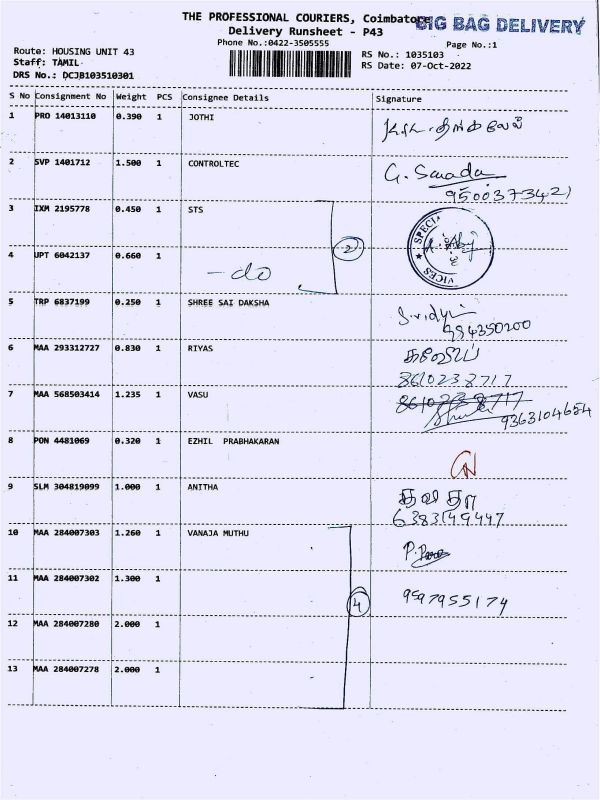 THE PROFESSIONAL COURIERS, Coimbatore
BIG BAG DELIVERY
Delivery Runsheet - P43
Phone No.:0422-3505555
Page No.:1
Route: HOUSING UNIT 43
RS No.: 1035103
Staff: TAMIL
RS Date: 07-Oct-2022
DRS No.: DCJB103510301
S No Consignment No Weight PCS Consignee Details Signature
1 PRO 14013110 0.390 1 JOTHI
2 SVP 1401712 1.500 1 CONTROLTEC G. Sarada
9500373421
3 IXM 2195778 0.450 1 STS
2
SPECI
VICES
4 UPT 6042137 0.660 1 -do
5 TRP 6837199 0.250 1 SHREE SAI DAKSHA
984350200
6 MAA 293312727 0.830 1 RIYAS
8610238717
7 MAA 568503414 1.235 1 VASU 8610238717
9363104654
8 PON 4481069 0.320 1 EZHIL PRABHAKARAN
9 SLM 304819099 1.000 1 ANITHA
6383149447
10 MAA 284007303 1.260 1 VANAJA MUTHU
11 MAA 284007302 1.300 1 4 9597955174
12 MAA 284007280 2.000 1
13 MAA 284007278 2.000 1